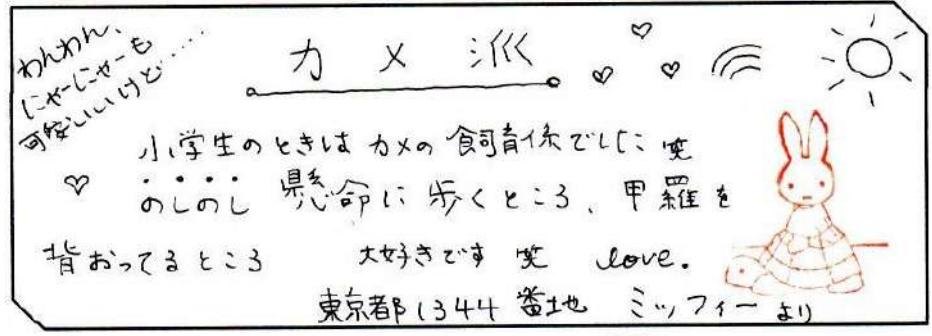 わんわん、
にゃーにゃーも
可愛いいけど‥‥‥
カメ派
小学生のときは カメの 飼育係でした 笑
のしのし 懸命に 歩くところ、甲羅を
背おってるところ 大好きです 笑 love.
東京都1344番地 ミッフィーより